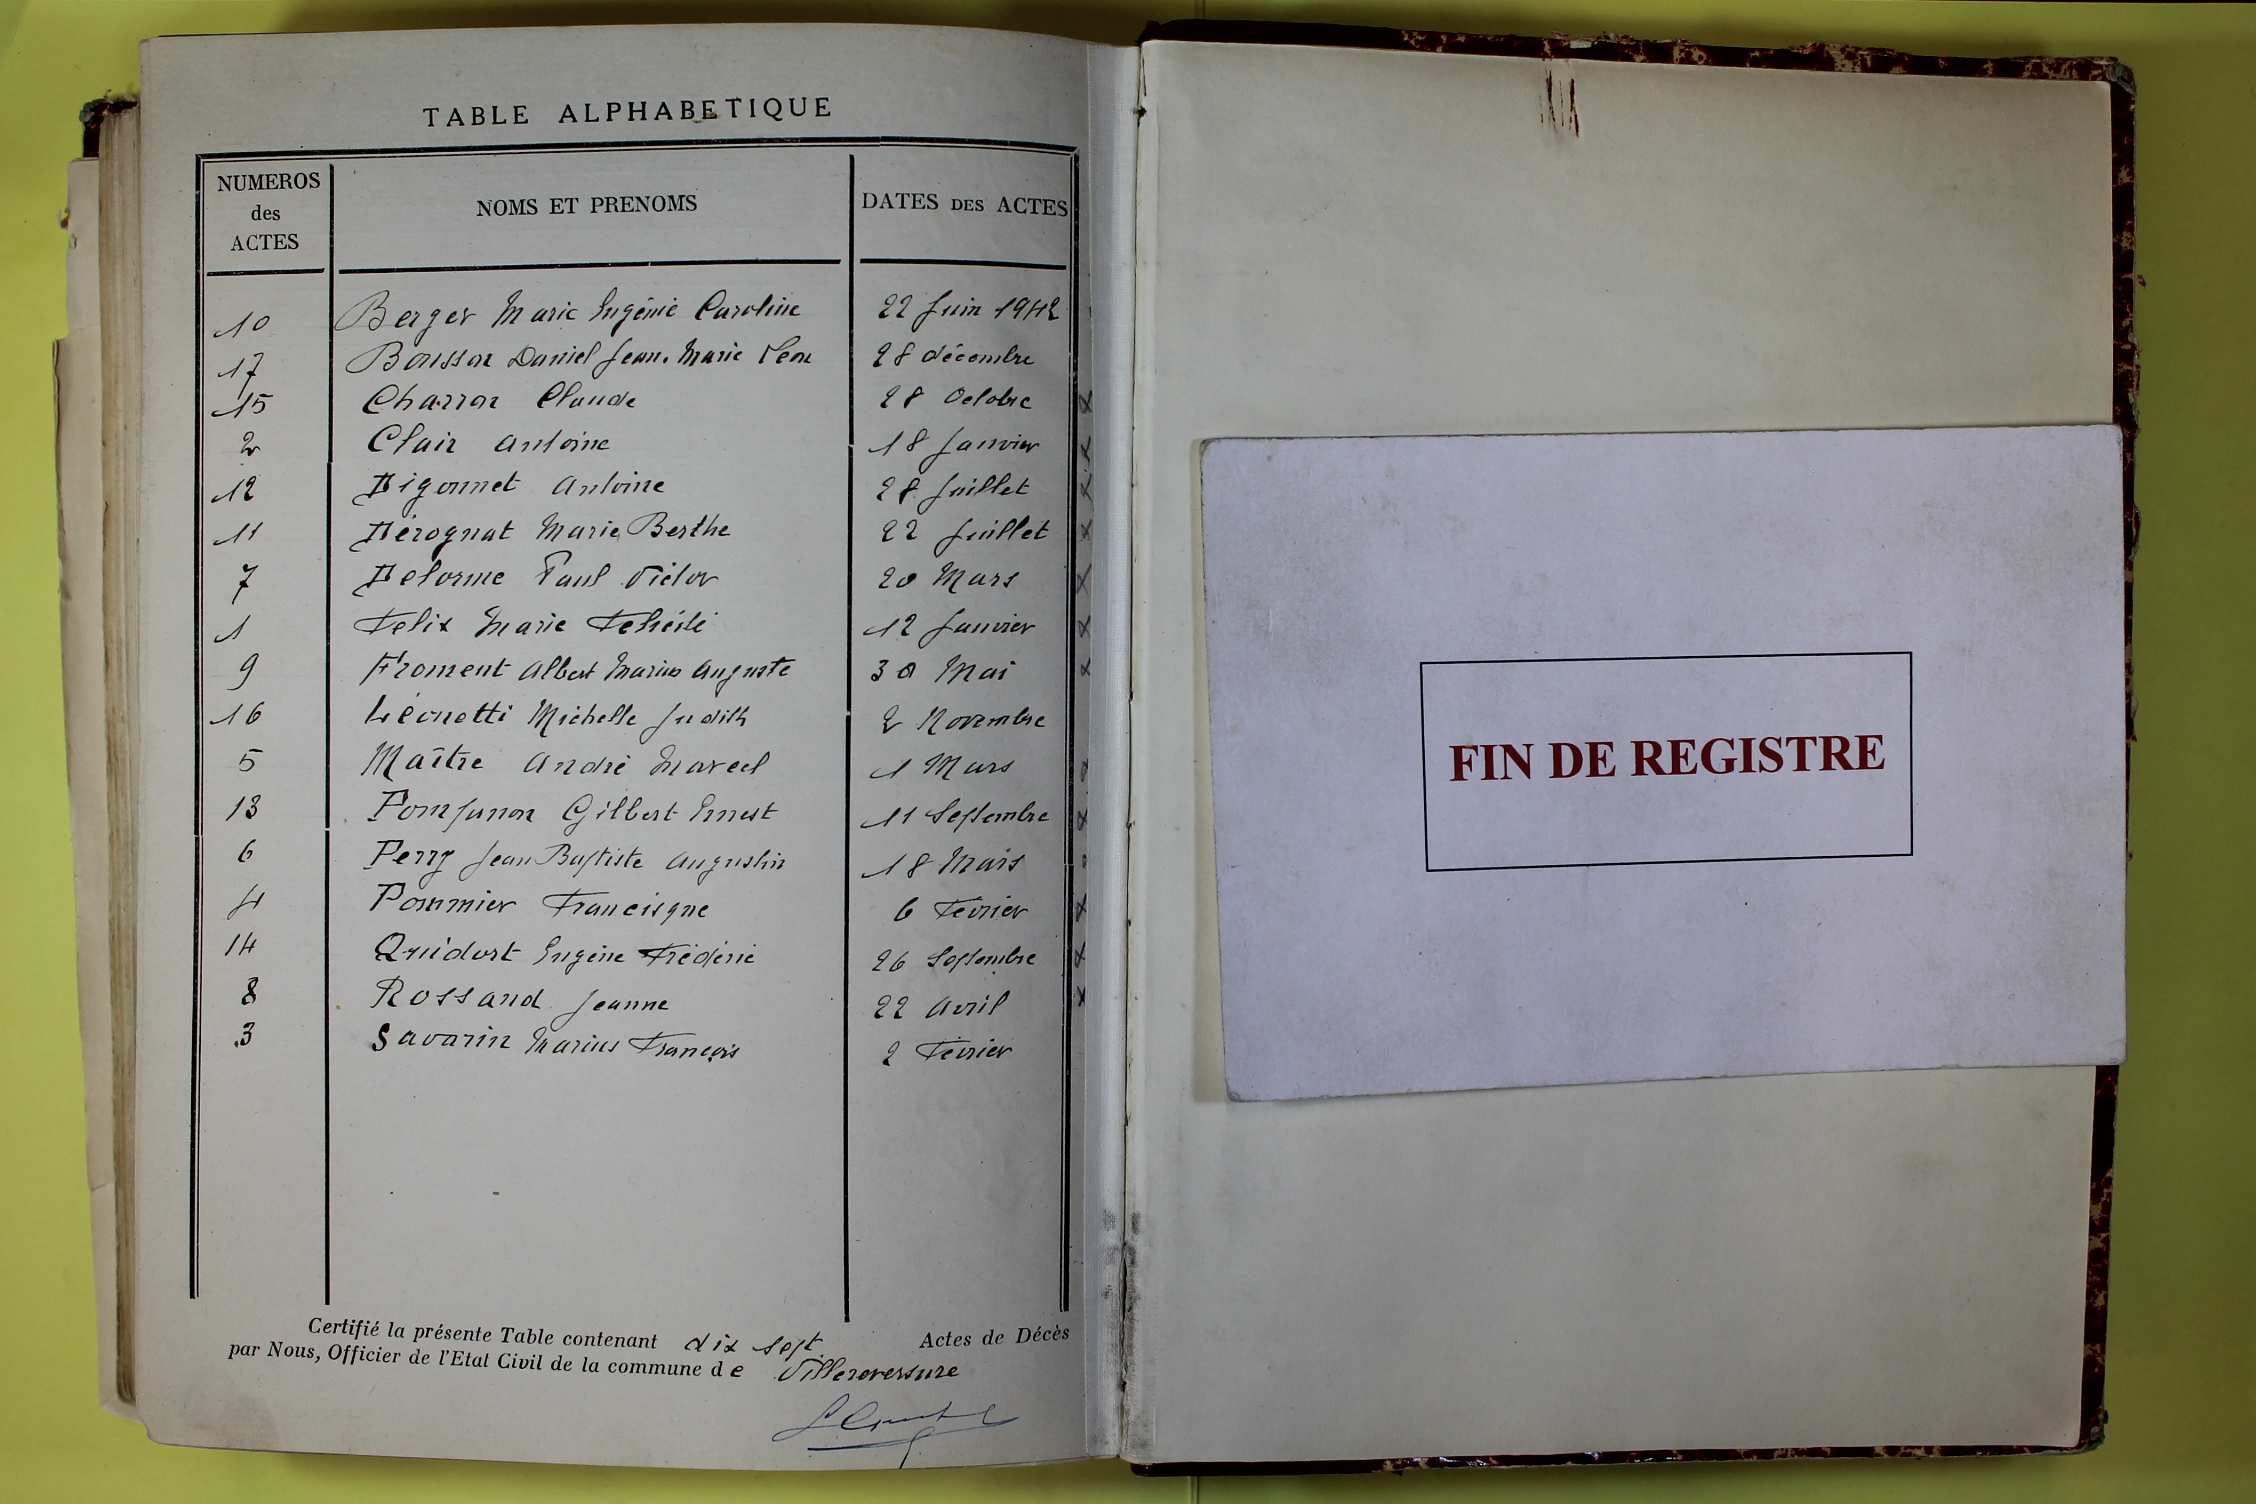 TABLE ALPHABETIQUE
NUMEROS des ACTES NOMS ET PRENOMS DATES DES ACTES
10 Berger Marie Eugénie Caroline 22 Juin 1942
17 Bousson Daniel Jean-Marie Léon 28 décembre
15 Charron Claude 28 Octobre
2 Clair Antoine 18 Janvier
12 Digonnet Antoine 28 Juillet
11 Dérognat Marie Berthe 22 Juillet
7 Delorme Paul Victor 20 Mars
1 Felix Marie 12 Janvier
9 Froment Albert Marius Auguste 30 Mai
16 Léonetti Michelle Judith 2 Novembre
5 Maître André Marcel 1 Mars
13 Gilbert Ernest 11 Septembre
6 Perry Jean Baptiste Augustin 18 Mars
4 Pommier Francisque 6 Février
14 Quidort Eugène Frédéric 26 Septembre
8 Rossand Jeanne 22 Avril
3 Savarin Marius François 2 Février
Certifié la présente Table contenant dix sept Actes de Décès
par Nous, Officier de l'Etat Civil de la commune de Villereversure
FIN DE REGISTRE